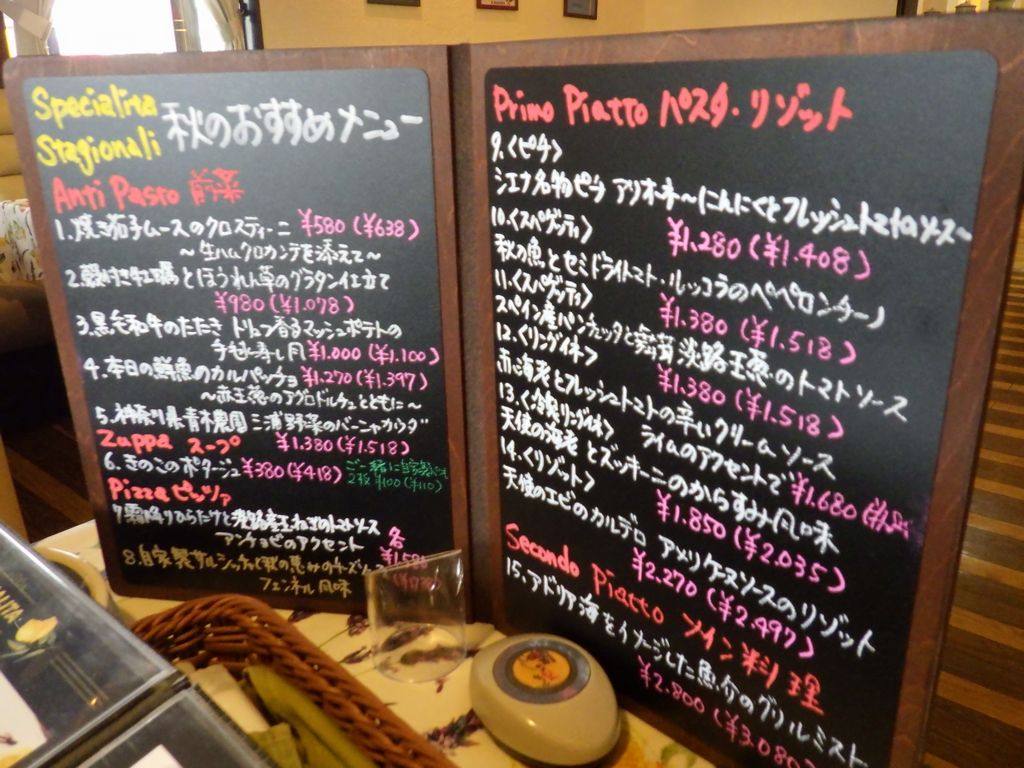 Specialita
Stagionali
秋のおすすめメニュー
Anti Pasto 前菜
1.焼き茄子ムースのクロスティーニ ¥580(¥638)
〜生ハムクロカンテを添えて〜
2.とほうれん草のグラタン仕立て
¥980(¥1.078)
3.黒毛和牛のたたき トリュフ香るマッシュポテトの
手毬寿し風 ¥1.000(¥1.100)
4.本日の鮮魚のカルパッチョ ¥1.270(¥1.397)
〜赤玉葱のアグロドルチェとともに〜
5.神奈川県青木農園 三浦野菜のバーニャカウダ
Zuppa スープ ¥1.380(¥1.518)
6.きのこのポタージュ ¥380(¥418) ご一緒に自家製
2枚 ¥100(¥110)
Pizza ピッツァ
7.霜降りひらたけと淡路産玉ねぎのトマトソース
アンチョビのアクセント 各
8.自家製サルシッチャと秋の恵みのチーズソース
フェンネル風味
Primo Piatto パスタ・リゾット
9.<ピチ>
シエナ名物ピチ アリオーネ〜にんにくとフレッシュトマトのソース〜
¥1.280(¥1.408)
10.<スパゲッティ>
秋の魚とセミドライトマト・ルッコラのペペロンチーノ
¥1.380(¥1.518)
11.<スパゲッティ>
スペイン産パンチェッタと舞茸 淡路玉葱のトマトソース
¥1.380(¥1.518)
12.<リングイネ>
赤海老とフレッシュトマトの辛いクリームソース
ライムのアクセントで ¥1.680
13.<冷製リングイネ>
天使の海老とズッキーニのからすみ風味
¥1.850(¥2.035)
14.<リゾット>
天使のエビのカルデロ アメリケーヌソースのリゾット
¥2.270(¥2.497)
Secondo Piatto メイン料理
15.アドリア海をイメージした魚介のグリルミスト
¥2.800(¥3.080)